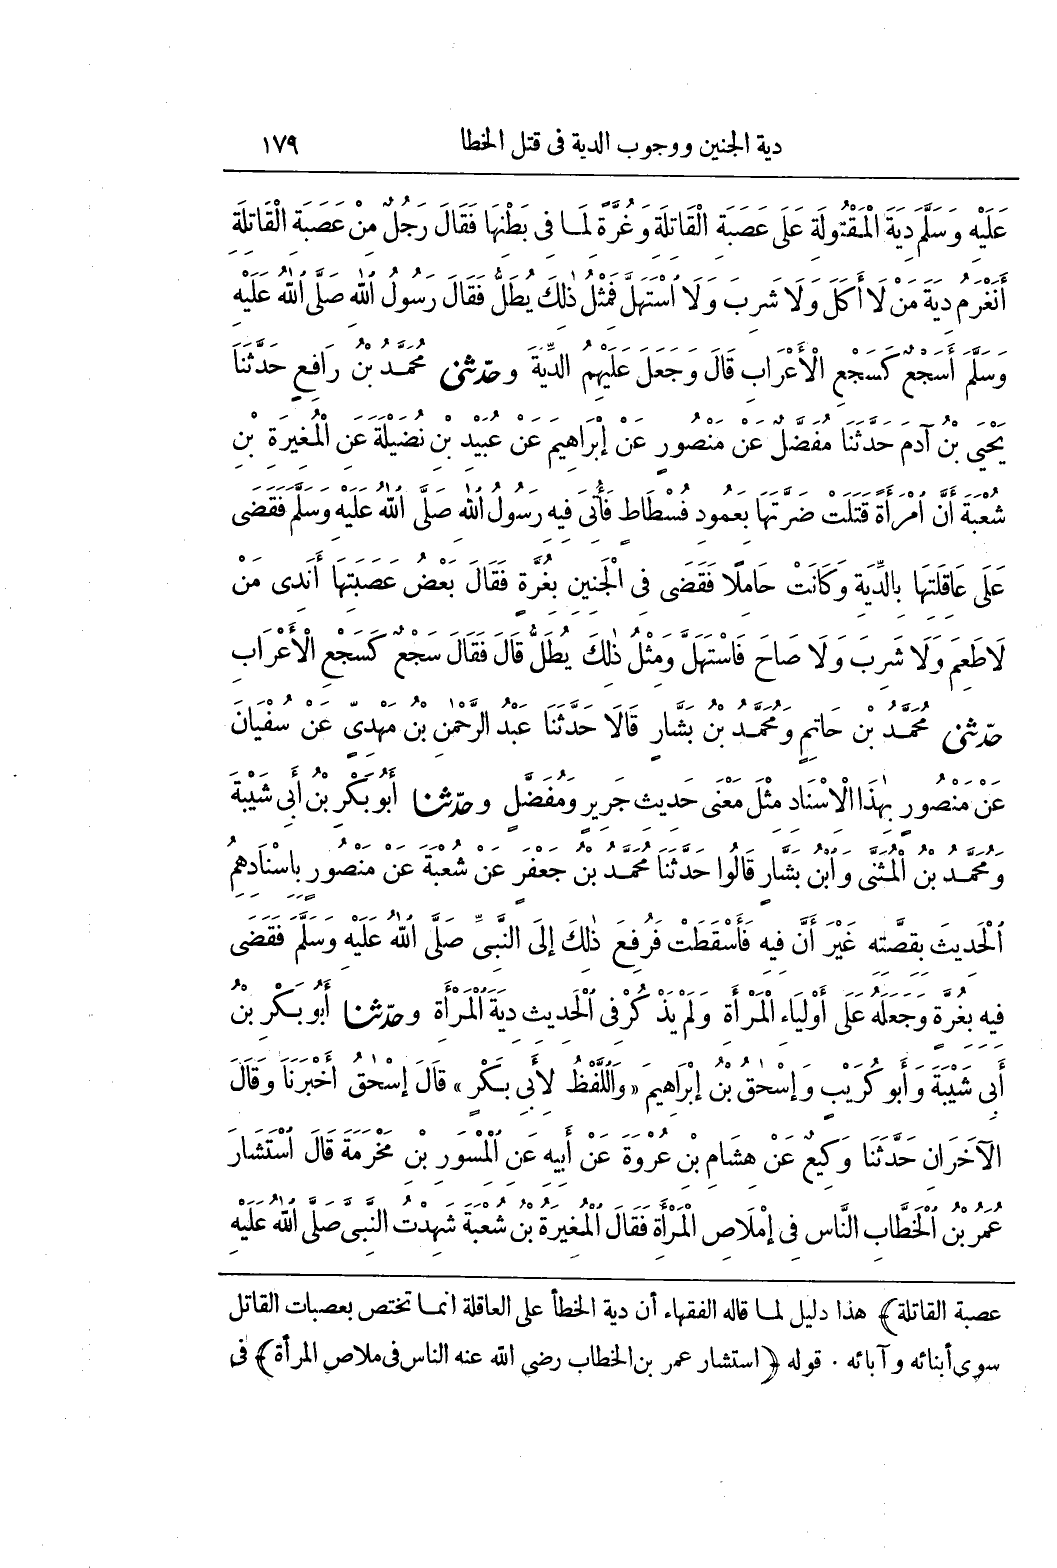 دية الجنين ووجوب الدية فى قتل الخطا ١٧٩
عَلَيْهِ وَسَلَّمَ دِيَةَ الْمَقْتُولَةِ عَلَى عَصَبَةِ الْقَاتِلَةِ وَغُرَّةً لِمَا فِى بَطْنِهَا فَقَالَ رَجُلٌ مِنْ عَصَبَةِ الْقَاتِلَةِ
أَنَغْرَمُ دِيَةَ مَنْ لَا أَكَلَ وَلَا شَرِبَ وَلَا اُسْتَهَلَّ فَمِثْلُ ذٰلِكَ يُطَلُّ فَقَالَ رَسُولُ اُللّٰهِ صَلَّى اُللّٰهُ عَلَيْهِ
وَسَلَّمَ أَسَجْعٌ كَسَجْعِ الْأَعْرَابِ قَالَ وَجَعَلَ عَلَيْهِمُ الدِّيَةَ وحدّثنى مُحَمَّدُ بْنُ رَافِعٍ حَدَّثَنَا
يَحْيَى بْنُ آدَمَ حَدَّثَنَا مُفَضَّلٌ عَنْ مَنْصُورٍ عَنْ إِبْرَاهِيمَ عَنْ عُبَيْدِ بْنِ نُضَيْلَةَ عَنِ الْمُغِيرَةِ بْنِ
شُعْبَةَ أَنَّ اُمْرَأَةً قَتَلَتْ ضَرَّتَهَا بِعَمُودِ فُسْطَاطٍ فَأُتِىَ فِيهِ رَسُولُ اُللّٰهِ صَلَّى اُللّٰهُ عَلَيْهِ وَسَلَّمَ فَقَضَى
عَلَى عَاقِلَتِهَا بِالدِّيَةِ وَكَانَتْ حَامِلًا فَقَضَى فِى الْجَنِينِ بِغُرَّةٍ فَقَالَ بَعْضُ عَصَبَتِهَا أَنَدِى مَنْ
لَا طَعِمَ وَلَا شَرِبَ وَلَا صَاحَ فَاسْتَهَلَّ وَمِثْلُ ذٰلِكَ يُطَلُّ قَالَ فَقَالَ سَجْعٌ كَسَجْعِ الْأَعْرَابِ
حدّثنى مُحَمَّدُ بْنُ حَاتِمٍ وَمُحَمَّدُ بْنُ بَشَّارٍ قَالَا حَدَّثَنَا عَبْدُ الرَّحْمٰنِ بْنُ مَهْدِىٍّ عَنْ سُفْيَانَ
عَنْ مَنْصُورٍ بِهٰذَا الْاِسْنَادِ مِثْلَ مَعْنَى حَدِيثِ جَرِيرٍ وَمُفَضَّلٍ وحدّثنا أَبُو بَكْرِ بْنُ أَبِى شَيْبَةَ
وَمُحَمَّدُ بْنُ اُلْمُثَنَّى وَاُبْنُ بَشَّارٍ قَالُوا حَدَّثَنَا مُحَمَّدُ بْنُ جَعْفَرٍ عَنْ شُعْبَةَ عَنْ مَنْصُورٍ بِاِسْنَادِهِمُ
اُلْحَدِيثَ بِقِصَّتِهِ غَيْرَ أَنَّ فِيهِ فَأَسْقَطَتْ فَرُفِعَ ذٰلِكَ إِلَى النَّبِىِّ صَلَّى اُللّٰهُ عَلَيْهِ وَسَلَّمَ فَقَضَى
فِيهِ بِغُرَّةٍ وَجَعَلَهُ عَلَى أَوْلِيَاءِ الْمَرْأَةِ وَلَمْ يَذْكُرْ فِى اُلْحَدِيثِ دِيَةَ اُلْمَرْأَةِ وحدّثنا أَبُو بَكْرِ بْنُ
أَبِى شَيْبَةَ وَأَبُو كُرَيْبٍ وَإِسْحٰقُ بْنُ إِبْرَاهِيمَ «وَاُللَّفْظُ لِأَبِى بَكْرٍ» قَالَ إِسْحٰقُ أَخْبَرَنَا وَقَالَ
الآخَرَانِ حَدَّثَنَا وَكِيعٌ عَنْ هِشَامِ بْنِ عُرْوَةَ عَنْ أَبِيهِ عَنِ اُلْمِسْوَرِ بْنِ مَخْرَمَةَ قَالَ اُسْتَشَارَ
عُمَرُ بْنُ اُلْخَطَّابِ النَّاسَ فِى إِمْلَاصِ الْمَرْأَةِ فَقَالَ اُلْمُغِيرَةُ بْنُ شُعْبَةَ شَهِدْتُ النَّبِىَّ صَلَّى اُللّٰهُ عَلَيْهِ
عصبة القاتلة﴾ هذا دليل لما قاله الفقهاء أن دية الخطأ على العاقلة انما تختص بعصبات القاتل
سوى أبنائه وآبائه . قوله ﴿استشار عمر بن الخطاب رضى الله عنه الناس فى ملاص المرأة﴾ فى